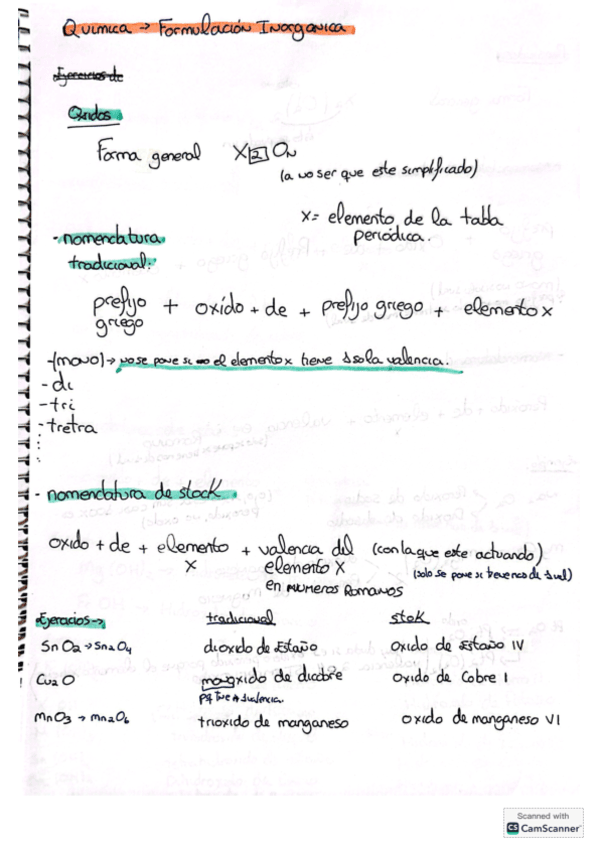 Química → Formulación Inorgánica
Ejercicios de
Óxidos:
Forma general X2On
(a no ser que este simplificado)
X= elemento de la tabla
periódica.
- nomenclatura
tradicional:
prefijo + oxído + de + prefijo griego + elemento x
griego
- (mono) → no se pone si no el elemento x tiene 1 sola valencia.
- di
- tri
- tretra
- nomenclatura de stock.
oxido + de + elemento + valencia del (con la que este actuando)
X elemento X (solo se pone si tiene más de 1 val)
en números Romanos
Ejercicios → tradicional stok
SnO2 → Sn2O4 dioxido de Estaño Oxido de Estaño IV
Cu2O monoxido de dicobre Oxido de Cobre I
pq tiene + valencia.
MnO3 → mn2O6 trioxido de manganeso oxido de manganeso VI
Scanned with
CS CamScanner